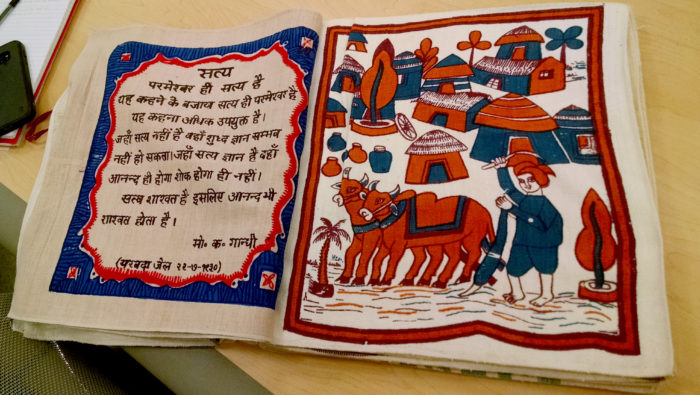 सत्य
परमेश्वर ही सत्य है
यह कहने के बजाय सत्य ही परमेश्वर है
यह कहना अधिक उपयुक्त है।
जहाँ सत्य नहीं है वहाँ शुध्ध ज्ञान सम्भव
नहीं हो सकता। जहाँ सत्य ज्ञान है वहाँ
आनन्द ही होगा शोक होगा ही नहीं।
सत्य शाश्वत है इसलिए आनन्द भी
शाश्वत होता है।
मो. क. गान्धी
(यरवदा जेल २२-७-१९३०)